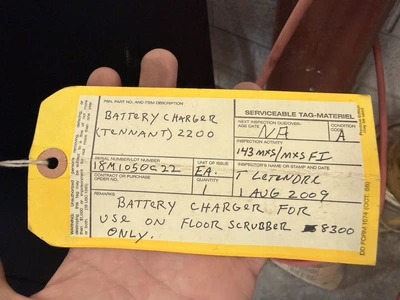 FSN, PART NO. AND ITEM DESCRIPTION
BATTERY CHARGER
(TENNANT) 2200
SERVICEABLE TAG-MATERIEL
NEXT INSPECTION DUE/OVER-
AGE DATE
NA
CONDITION
CODE
A
INSPECTION ACTIVITY
143MXS/MXSFI
SERIAL NUMBER/LOT NUMBER
18M1050C22
UNIT OF ISSUE
EA.
INSPECTOR'S NAME OR STAMP AND DATE
T LETENDRE
1 AUG 2009
CONTRACT OR PURCHASE
ORDER NO.
QUANTITY
1
REMARKS
BATTERY CHARGER FOR
USE ON FLOOR SCRUBBER 8300
ONLY.
DD FORM 1574 (OCT. 66)